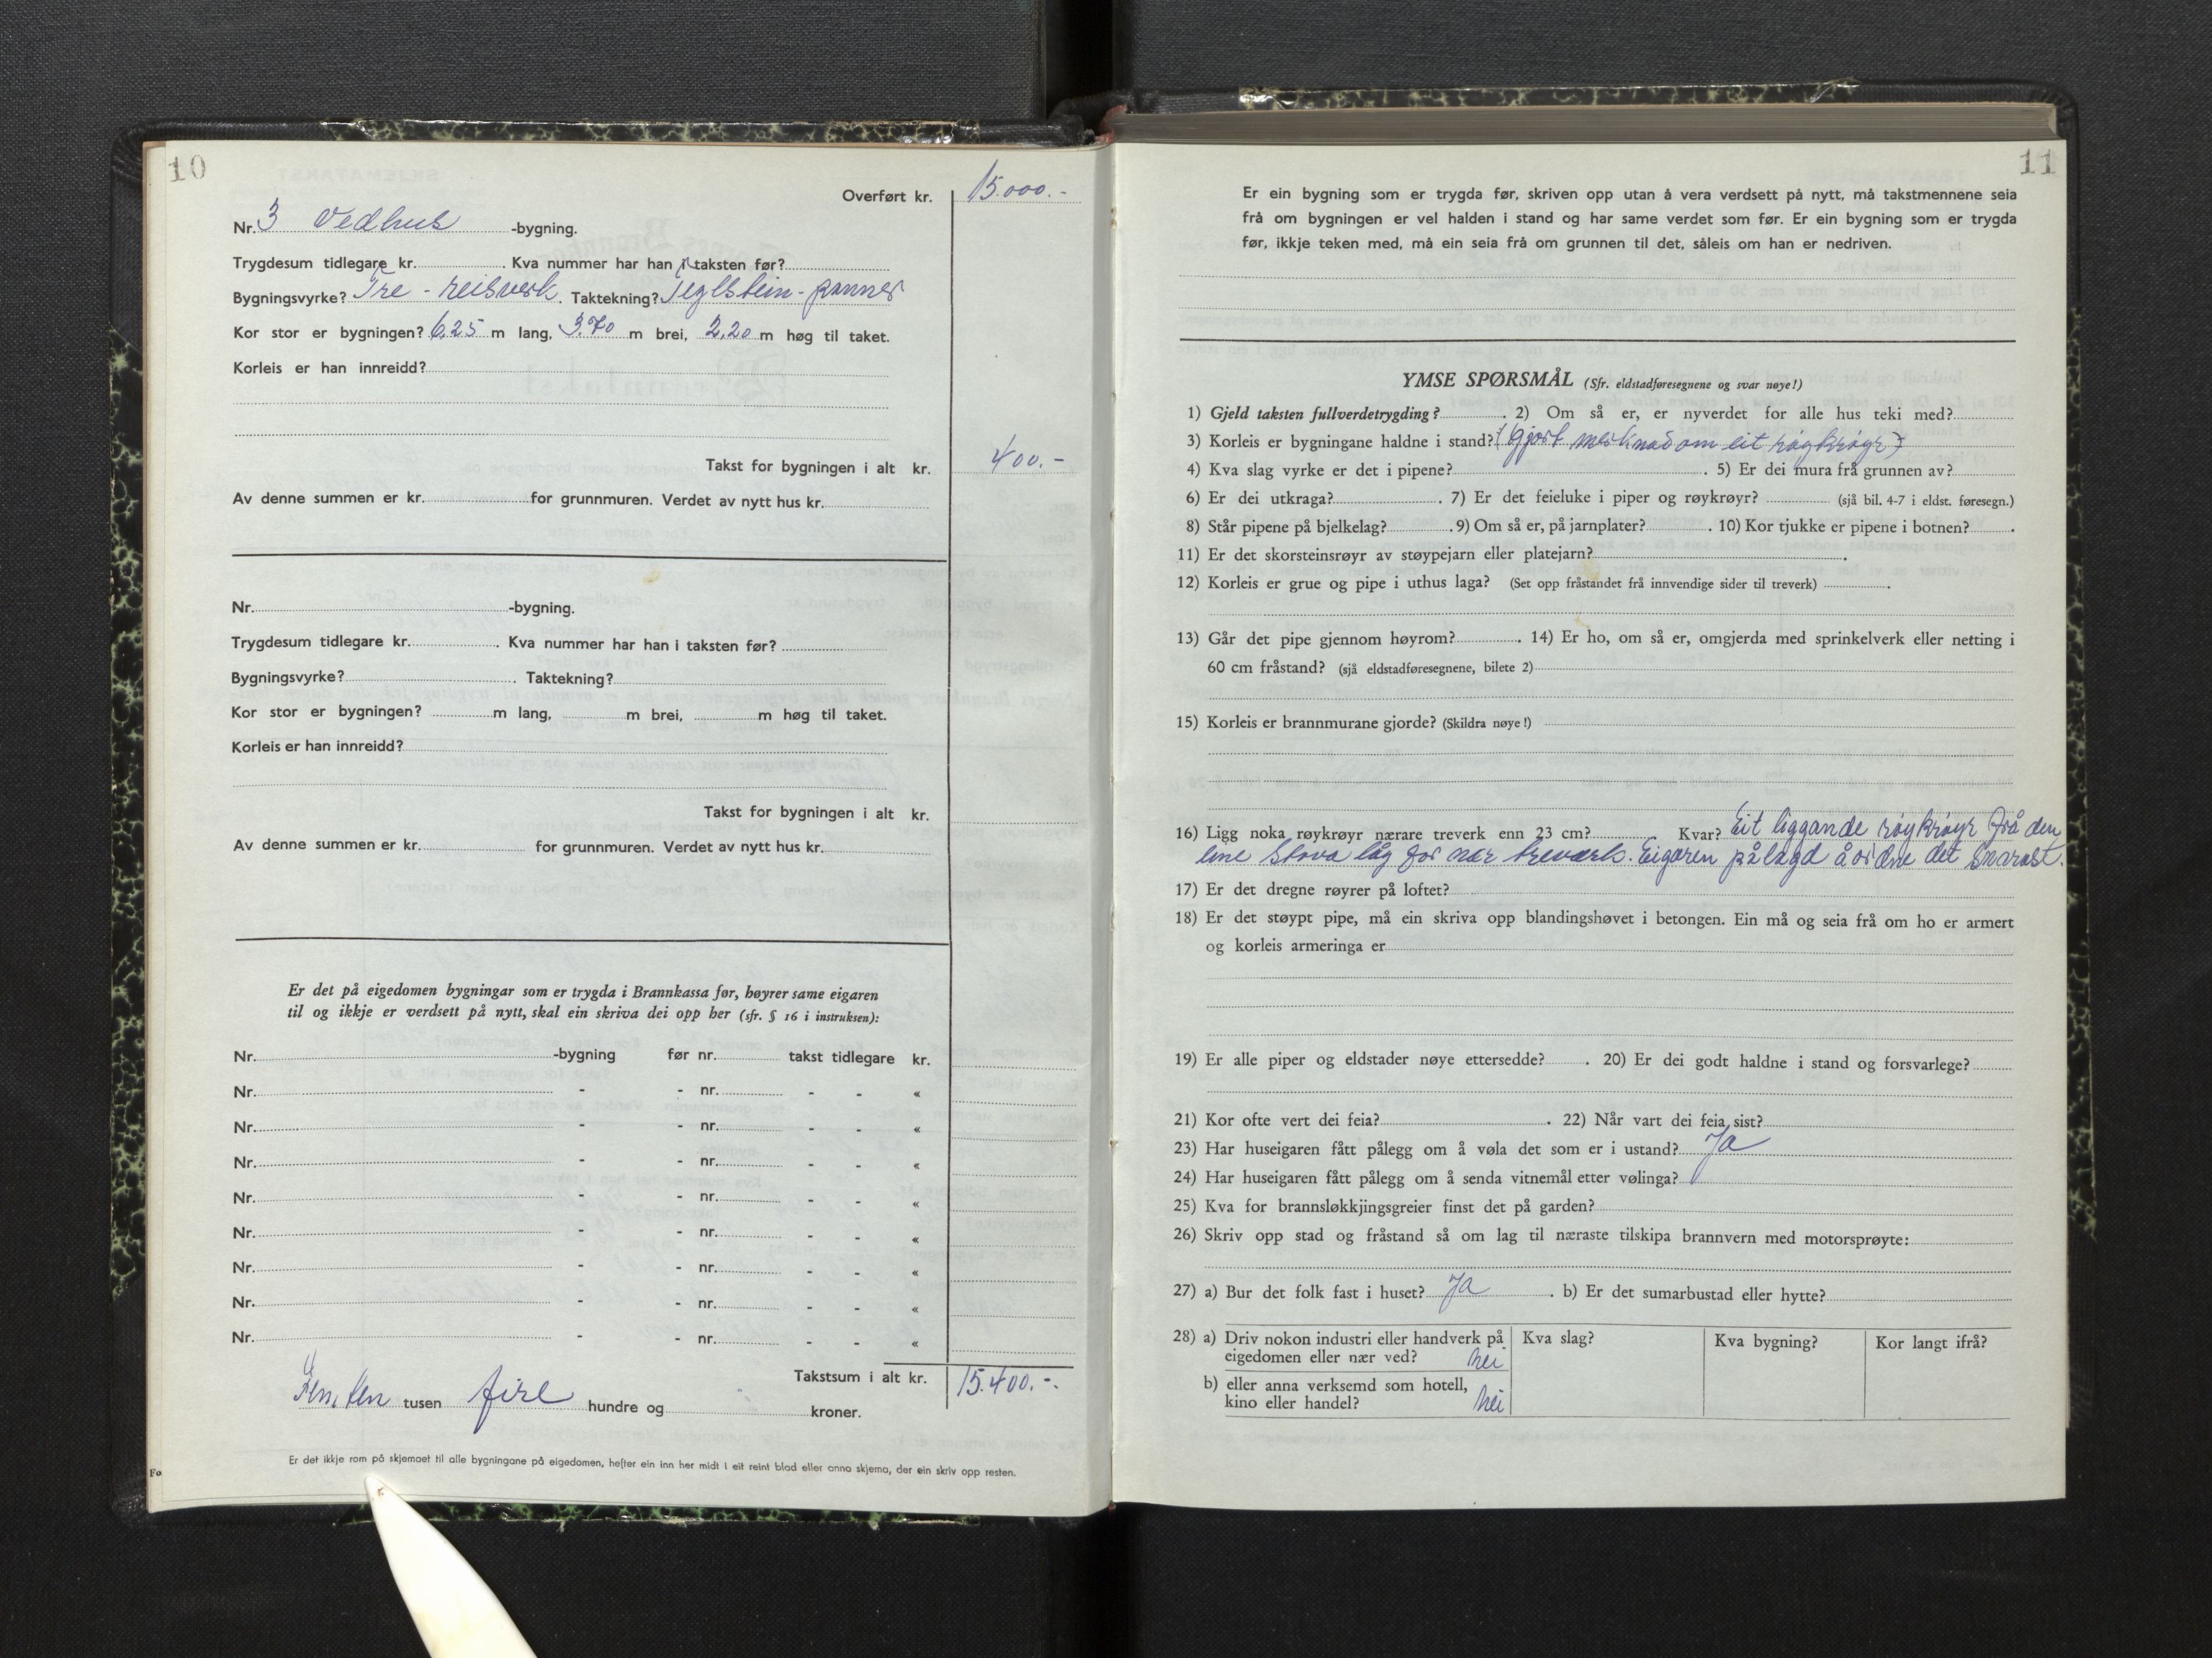 10
Overført kr. 15.000.-
Nr. 3 Vedhus -bygning.
Trygdesum tidlegare kr. Kva nummer har han i taksten før?
Bygningsvyrke? Tre - reisverk. Taktekning? Teglstein - panner
Kor stor er bygningen? 6,25 m lang, 3.70 m brei, 2,20 m høg til taket.
Korleis er han innreidd?
Takst for bygningen i alt kr. 400.-
Av denne summen er kr. for grunnmuren. Verdet av nytt hus kr.
Nr. -bygning.
Trygdesum tidlegare kr. Kva nummer har han i taksten før?
Bygningsvyrke? . Taktekning?
Kor stor er bygningen? m lang, m brei, m høg til taket.
Korleis er han innreidd?
Takst for bygningen i alt kr.
Av denne summen er kr. for grunnmuren. Verdet av nytt hus kr.
Er det på eigedomen bygningar som er trygda i Brannkassa før, høyrer same eigaren
til og ikkje er verdsett på nytt, skal ein skriva dei opp her (sfr. § 16 i instruksen):
Nr. -bygning før nr. takst tidlegare kr.
Nr. - - nr. - - «
Nr. - - nr. - - «
Nr. - - nr. - - «
Nr. - - nr. - - «
Nr. - - nr. - - «
Nr. - - nr. - - «
Nr. - - nr. - - «
Nr. - - nr. - - «
Takstsum i alt kr. 15.400.-
Femten tusen fire hundre og kroner.
Er det ikkje rom på skjemaet til alle bygningane på eigedomen, hefter ein inn her midt i eit reint blad eller anna skjema, der ein skriv opp resten.
Fo
11
Er ein bygning som er trygda før, skriven opp utan å vera verdsett på nytt, må takstmennene seia
frå om bygningen er vel halden i stand og har same verdet som før. Er ein bygning som er trygda
før, ikkje teken med, må ein seia frå om grunnen til det, såleis om han er nedriven.
YMSE SPØRSMÅL (Sfr. eldstadføresegnene og svar nøye!)
1) Gjeld taksten fullverdetrygding? . 2) Om så er, er nyverdet for alle hus teki med?
3) Korleis er bygningane haldne i stand? (Gjort merknad om eit røykrøyr)
4) Kva slag vyrke er det i pipene? . 5) Er dei mura frå grunnen av?
6) Er dei utkraga? . 7) Er det feieluke i piper og røykrøyr? (sjå bil. 4-7 i eldst. føresegn.)
8) Står pipene på bjelkelag? . 9) Om så er, på jarnplater? . 10) Kor tjukke er pipene i botnen? .
11) Er det skorsteinsrøyr av støypejarn eller platejarn? .
12) Korleis er grue og pipe i uthus laga? (Set opp fråstandet frå innvendige sider til treverk) .
13) Går det pipe gjennom høyrom? . 14) Er ho, om så er, omgjerda med sprinkelverk eller netting i
60 cm fråstand? (sjå eldstadføresegnene, bilete 2)
15) Korleis er brannmurane gjorde? (Skildra nøye!)
16) Ligg noka røykrøyr nærare treverk enn 23 cm? . Kvar? Eit liggande røykrøyr frå den
eine stova låg for nær treverk. Eigaren pålagd å ordne det snarast.
17) Er det dregne røyrer på loftet?
18) Er det støypt pipe, må ein skriva opp blandingshøvet i betongen. Ein må og seia frå om ho er armert
og korleis armeringa er
19) Er alle piper og eldstader nøye ettersedde? . 20) Er dei godt haldne i stand og forsvarlege?
21) Kor ofte vert dei feia? . 22) Når vart dei feia sist?
23) Har huseigaren fått pålegg om å vøla det som er i ustand? Ja
24) Har huseigaren fått pålegg om å senda vitnemål etter vølinga?
25) Kva for brannsløkkjingsgreier finst det på garden?
26) Skriv opp stad og fråstand så om lag til næraste tilskipa brannvern med motorsprøyte:
27) a) Bur det folk fast i huset? Ja . b) Er det sumarbustad eller hytte?
28) a) Driv nokon industri eller handverk på Kva slag? Kva bygning? Kor langt ifrå?
eigedomen eller nær ved? nei
b) eller anna verksemd som hotell,
kino eller handel? nei